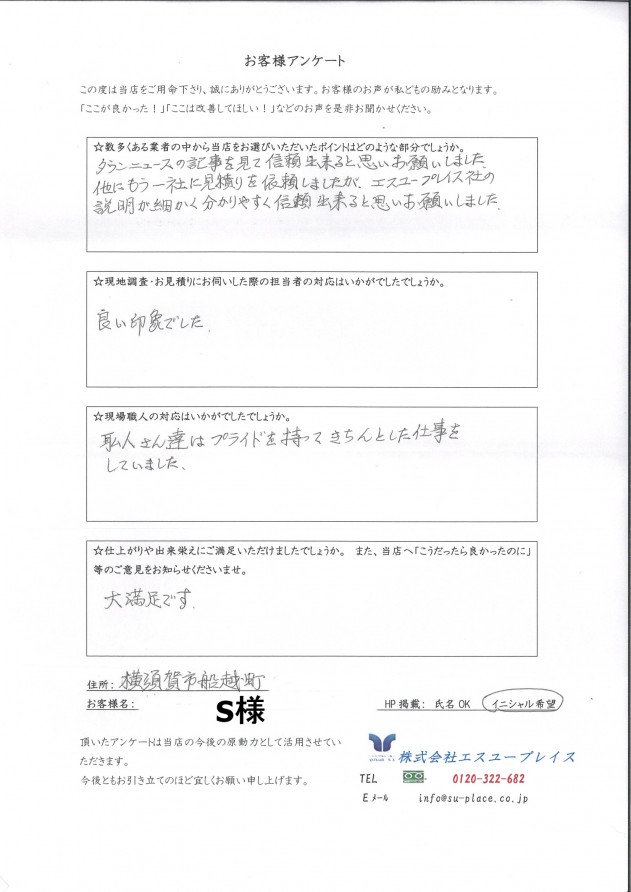 お客様アンケート
この度は当店をご用命下さり、誠にありがとうございます。お客様のお声が私どもの励みとなります。
「ここが良かった！」「ここは改善してほしい！」などのお声を是非お聞かせください。
☆数多くある業者の中から当店をお選びいただいたポイントはどのような部分でしょうか。
タウンニュースの記事を見て信頼出来ると思いお願いしました.
他にもう一社に見積りを依頼しましたが、エスユープレイス社の
説明が細かく分かりやすく信頼出来ると思いお願いしました.
☆現地調査・お見積りにお伺いした際の担当者の対応はいかがでしたでしょうか。
良い印象でした.
☆現場職人の対応はいかがでしたでしょうか。
職人さん達はプライドを持ってきちんとした仕事を
していました、
☆仕上がりや出来栄えにご満足いただけましたでしょうか。 また、当店へ「こうだったら良かったのに」
等のご意見をお知らせくださいませ。
大満足です.
住所: 横須賀市船越町
お客様名: S様
HP掲載: 氏名OK イニシャル希望
頂いたアンケートは当店の今後の原動力として活用させてい
ただきます。
今後ともお引き立てのほど宜しくお願い申し上げます。
株式会社エスユープレイス
TEL 0120-322-682
Eメール info@su-place.co.jp